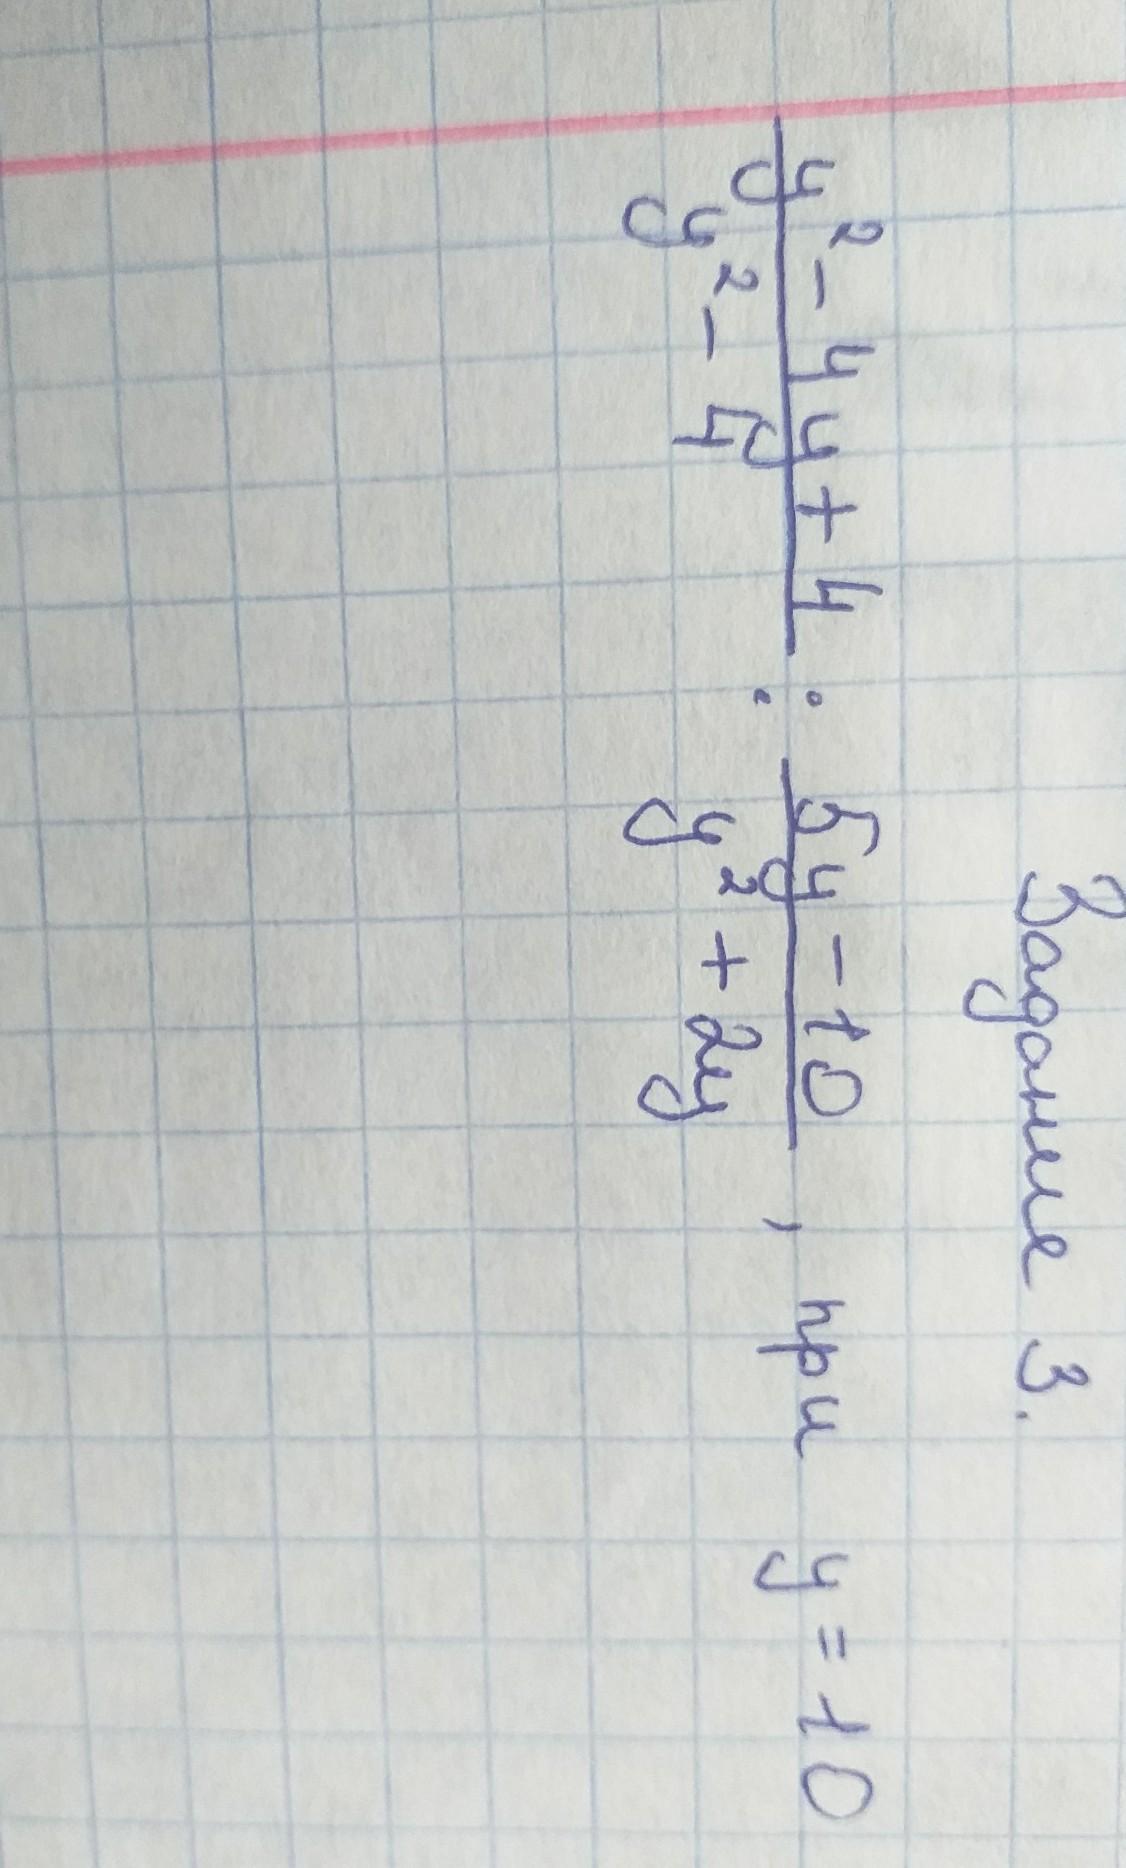 Задание 3.
y² - 4y + 4 / y² - 4 : 5y - 10 / y² + 2y , при y = 10